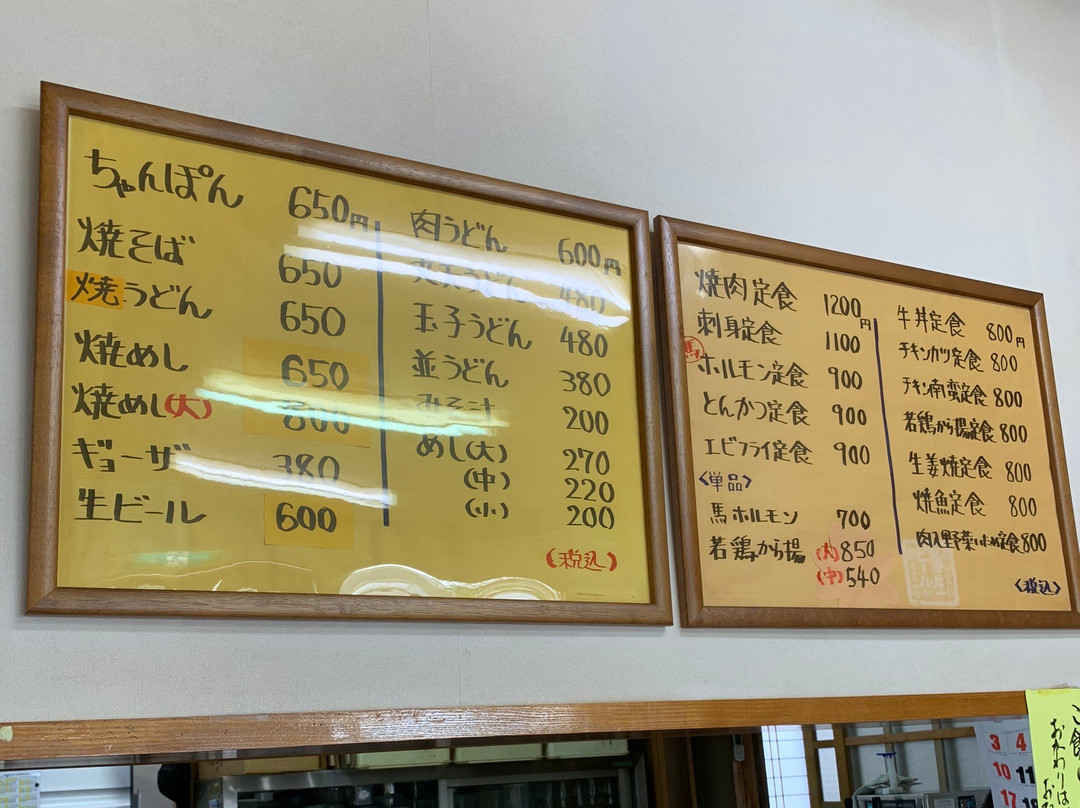 ちゃんぽん 650円
焼そば 650
焼うどん 650
焼めし 650
焼めし(大) 800
ギョーザ 380
生ビール 600
肉うどん 600円
丸天うどん 480
玉子うどん 480
並うどん 380
みそ汁 200
めし(大) 270
(中) 220
(小) 200
(税込)
焼肉定食 1200円
刺身定食 1100
馬ホルモン定食 900
とんかつ定食 900
エビフライ定食 900
<単品>
馬ホルモン 700
若鶏から揚 (大)850
(中)540
牛丼定食 800円
チキンカツ定食 800
チキン南蛮定食 800
若鶏から揚定食 800
生姜焼定食 800
焼魚定食 800
肉入野菜いため定食 800
<税込>
おかわりは
3 4
10 11
17 18